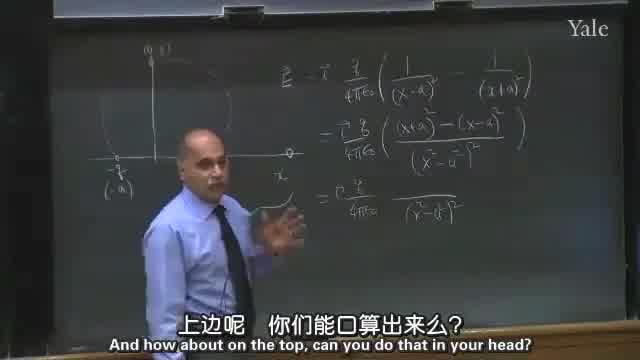 Yale
E = i q/4πε₀ ( 1/(x-a)² - 1/(x+a)² )
= i q/4πε₀ ( (x+a)² - (x-a)² / (x²-a²)² )
x
-q
(-a)
= i q/4πε₀ /(x²-a²)²
上边呢 你们能口算出来么?
And how about on the top, can you do that in your head?